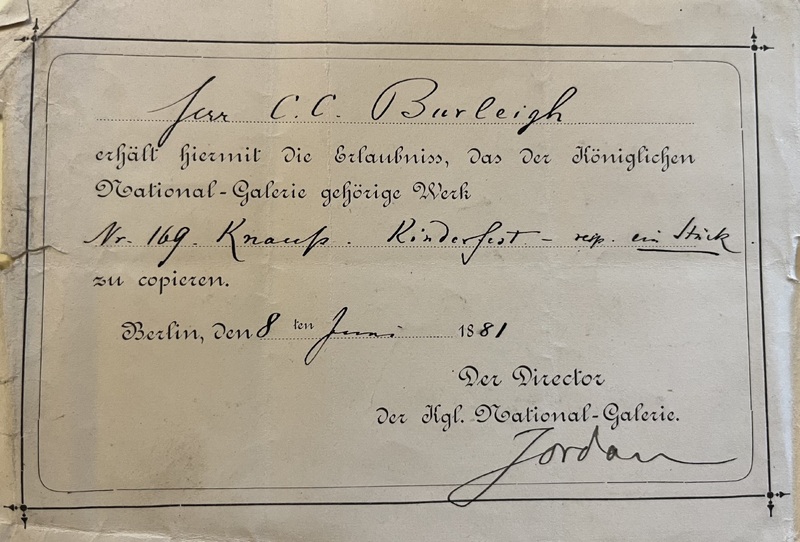 Herr C. C. Burleigh
erhält hiermit die Erlaubniss, das der Königlichen
National-Galerie gehörige Werk
Nr. 169. Knauß. Kinderfest – resp. ein Stück
zu copieren.
Berlin, den 8ten Juni 1881
Der Director
der Kgl. National-Galerie.
Jordan